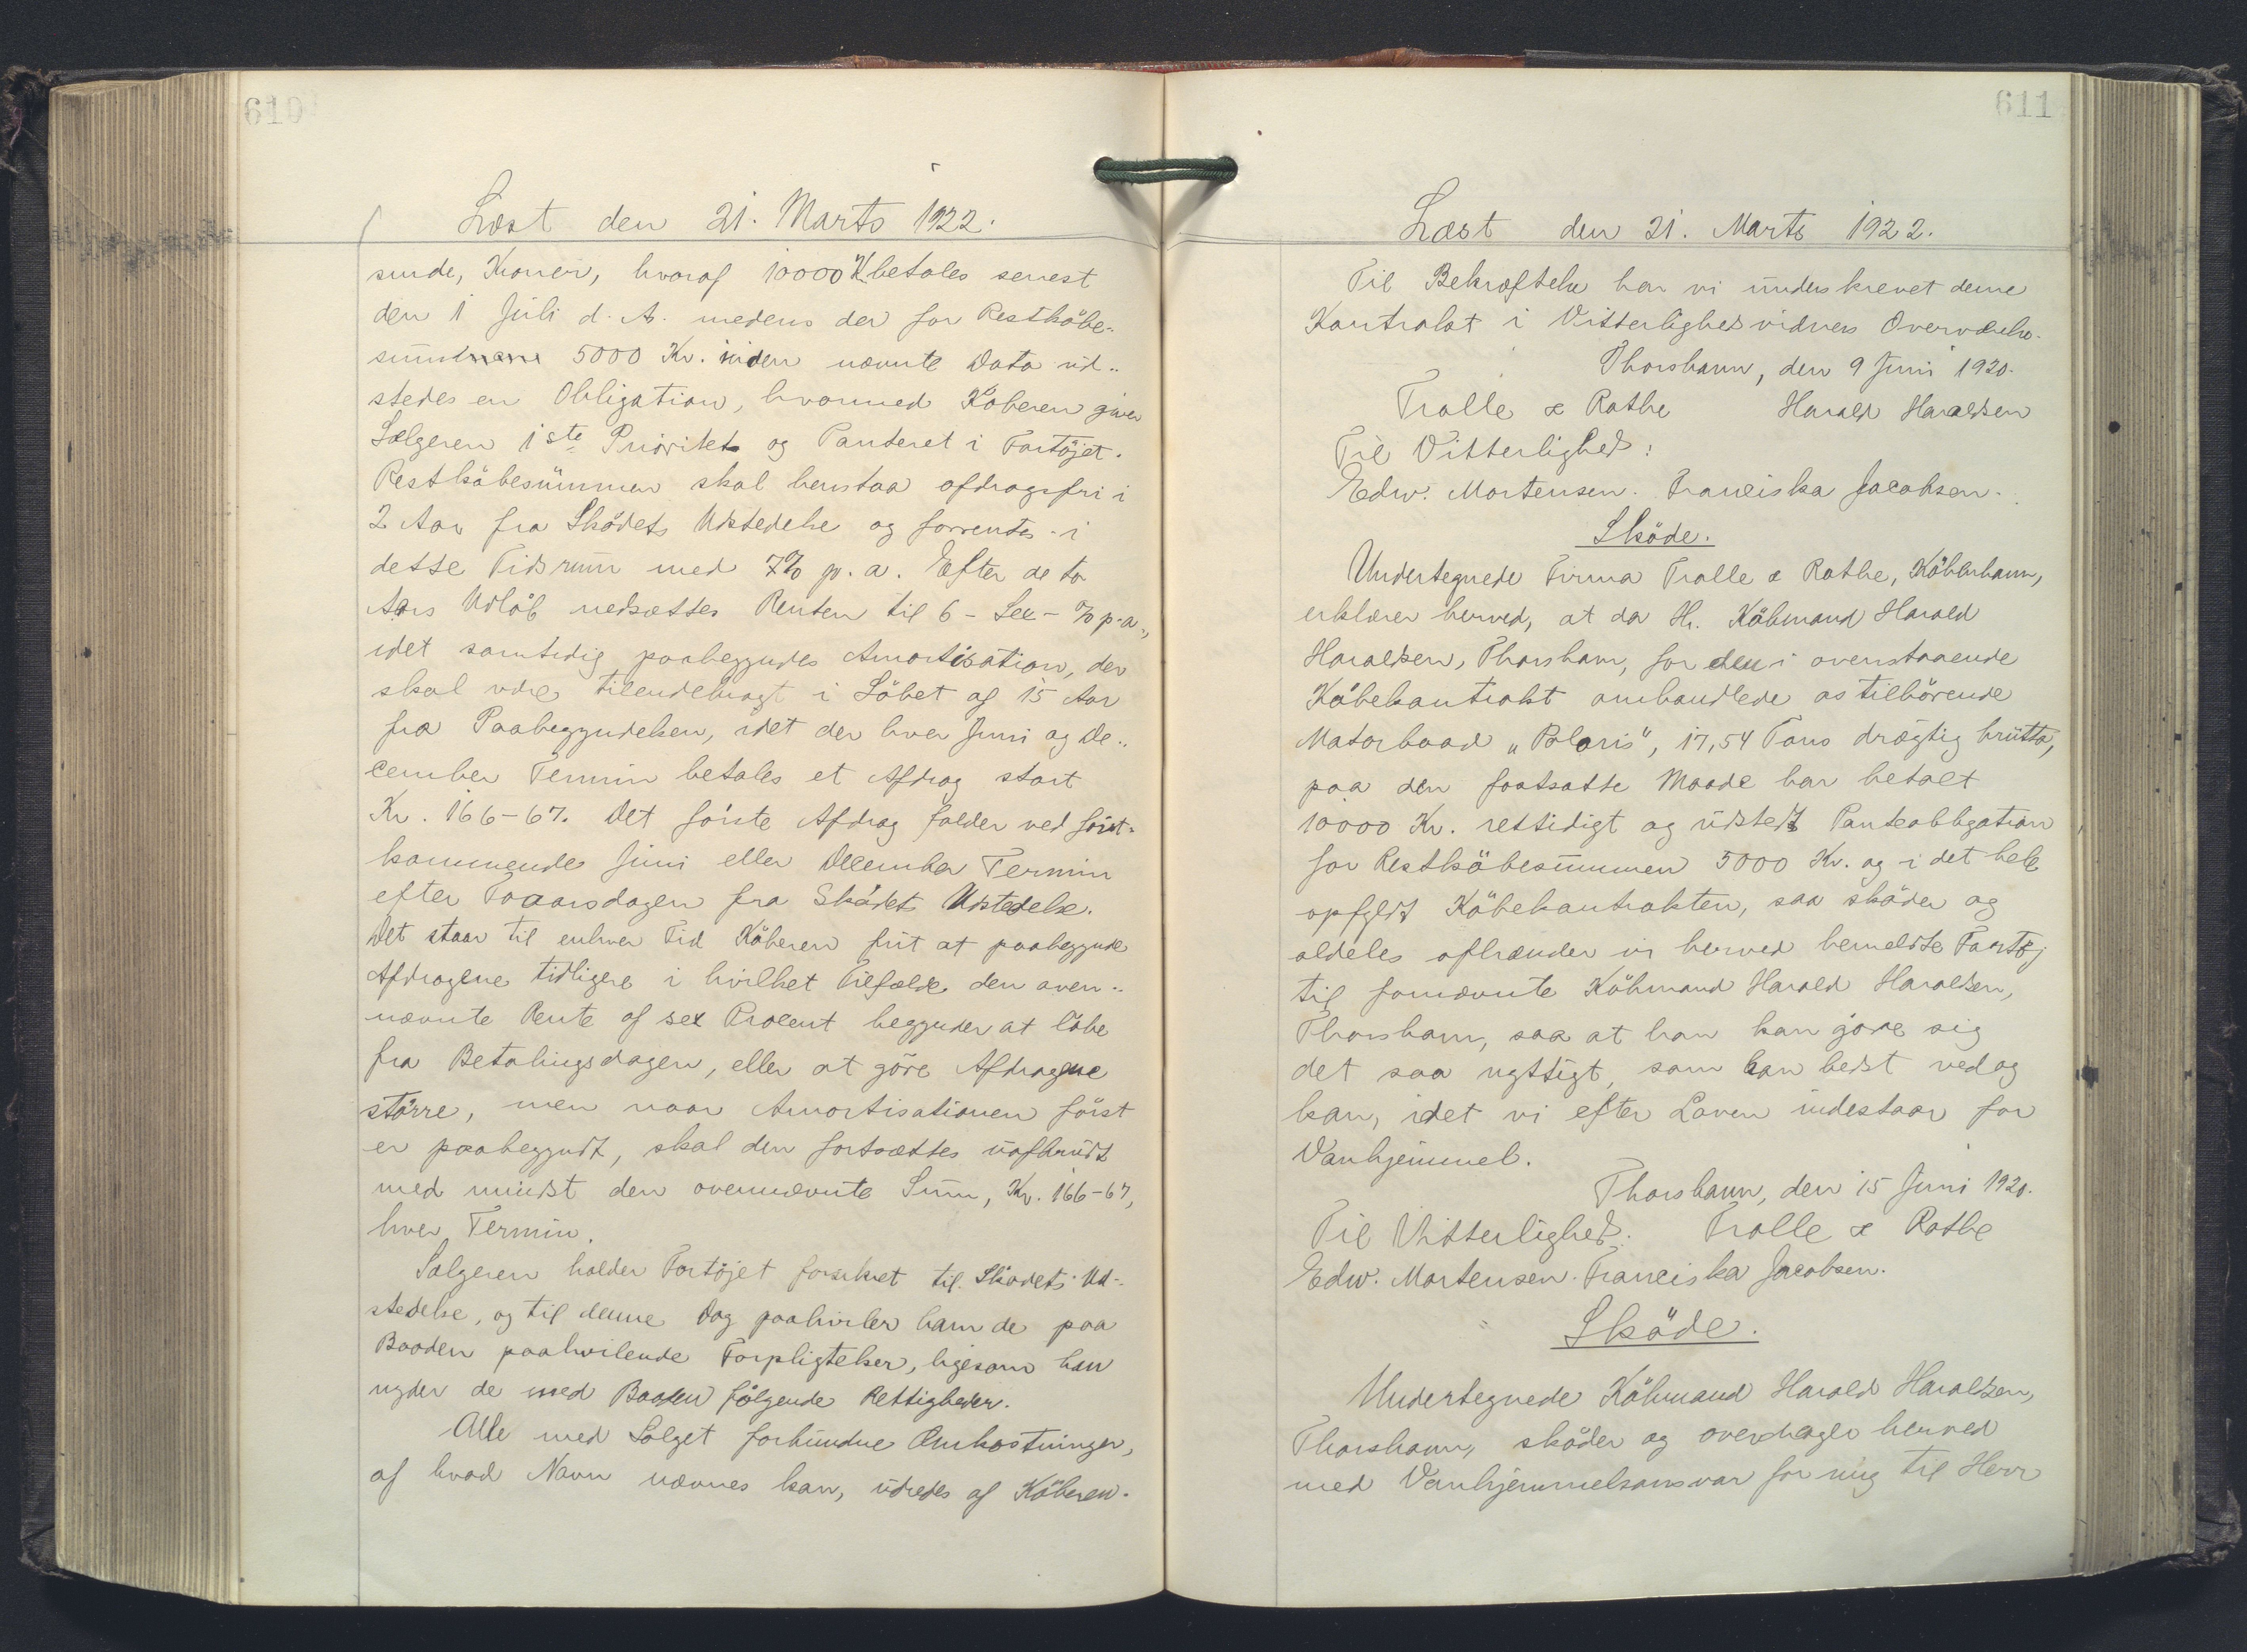 610
Læst den 21. Marts 1922.
sinde, Kroner, hvoraf 10000 K betales senest
den 1 Juli d. A. medens der for Restköbe-
summen 5000 Kr. inden nævnte Dato ud-
stedes en Obligation, hvormed Köberen giver
Sælgeren 1ste Prioritets og Panteret i Fartöjet.
Restköbesummen skal henstaa afdragsfri i
2 Aar fra Sködets Udstedelse og forrentes i
dette Tidsrum med 7% p.a. Efter de to
Aars Udlöb nedsættes Renten til 6 - Sex - % p.a.,
idet samtidig paabegyndes Amortisation, der
skal være tilendebragt i Löbet af 15 Aar
fra Paabegyndelsen, idet der hver Juni og De-
cember Termin betales et Afdrag stort
Kr. 166-67. Det förste Afdrag falder ved först-
kommende Juni eller December Termin
efter Toaarsdagen fra Sködets Udstedelse.
Det staar til enhver Tid Köberen frit at paabegynde
Afdragene tidligere i hvilket Tilfælde den oven-
nævnte Rente af sex Procent begynder at löbe
fra Betalingsdagen, eller at göre Afdragene
större, men naar Amortisationen först
er paabegyndt, skal den fortsættes uafbrudt
med mindst den ovennævnte Sum, Kr. 166-67,
hver Termin.
Sælgeren holder Fartöjet forsikret til Sködets Ud-
stedelse, og til denne Dag paahviler ham de paa
Baaden paahvilende Forpligtelser, ligesom han
nyder de med Baaden fölgende Rettigheder.
Alle med Salget forbundne Omkostninger,
af hvad Navn nævnes kan, udredes af Köberen.
611
Læst den 21. Marts 1922.
Til Bekræftelse har vi underskrevet denne
Kontrakt i Vitterlighedsvidners Overværelse.
Thorshavn, den 9 Juni 1920.
Trolle & Rothe Harald Haraldsen
Til Vitterlighed:
Edw. Mortensen. Franciska Jacobsen.
Sköde.
Undertegnede Firma Trolle & Rothe, Köbenhavn,
erklærer herved, at da Hr. Köbmand Harald
Haraldsen, Thorshavn, for den i ovenstaaende
Köbekontrakt omhandlede os tilhörende
Motorbaad "Polaris", 17,54 Tons drægtig brutto,
paa den fastsatte Maade har betalt
10000 Kr. rettidigt og udstedt Panteobligation
for Restköbesummen 5000 Kr. og i det hele
opfyldt Köbekontrakten, saa sköder og
aldeles afhænder vi herved bemeldte Fartöj
til fornævnte Köbmand Harald Haraldsen,
Thorshavn, saa at han kan göre sig
det saa nyttigt, som han bedst ved og
kan, idet vi efter Loven indestaar for
Vanhjemmel.
Thorshavn, den 15 Juni 1920.
Til Vitterlighed: Trolle & Rothe
Edw. Mortensen. Franciska Jacobsen.
Sköde.
Undertegnede Köbmand Harald Haraldsen,
Thorshavn, sköder og overdrager herved
med Vanhjemmelsansvar for mig til Herr